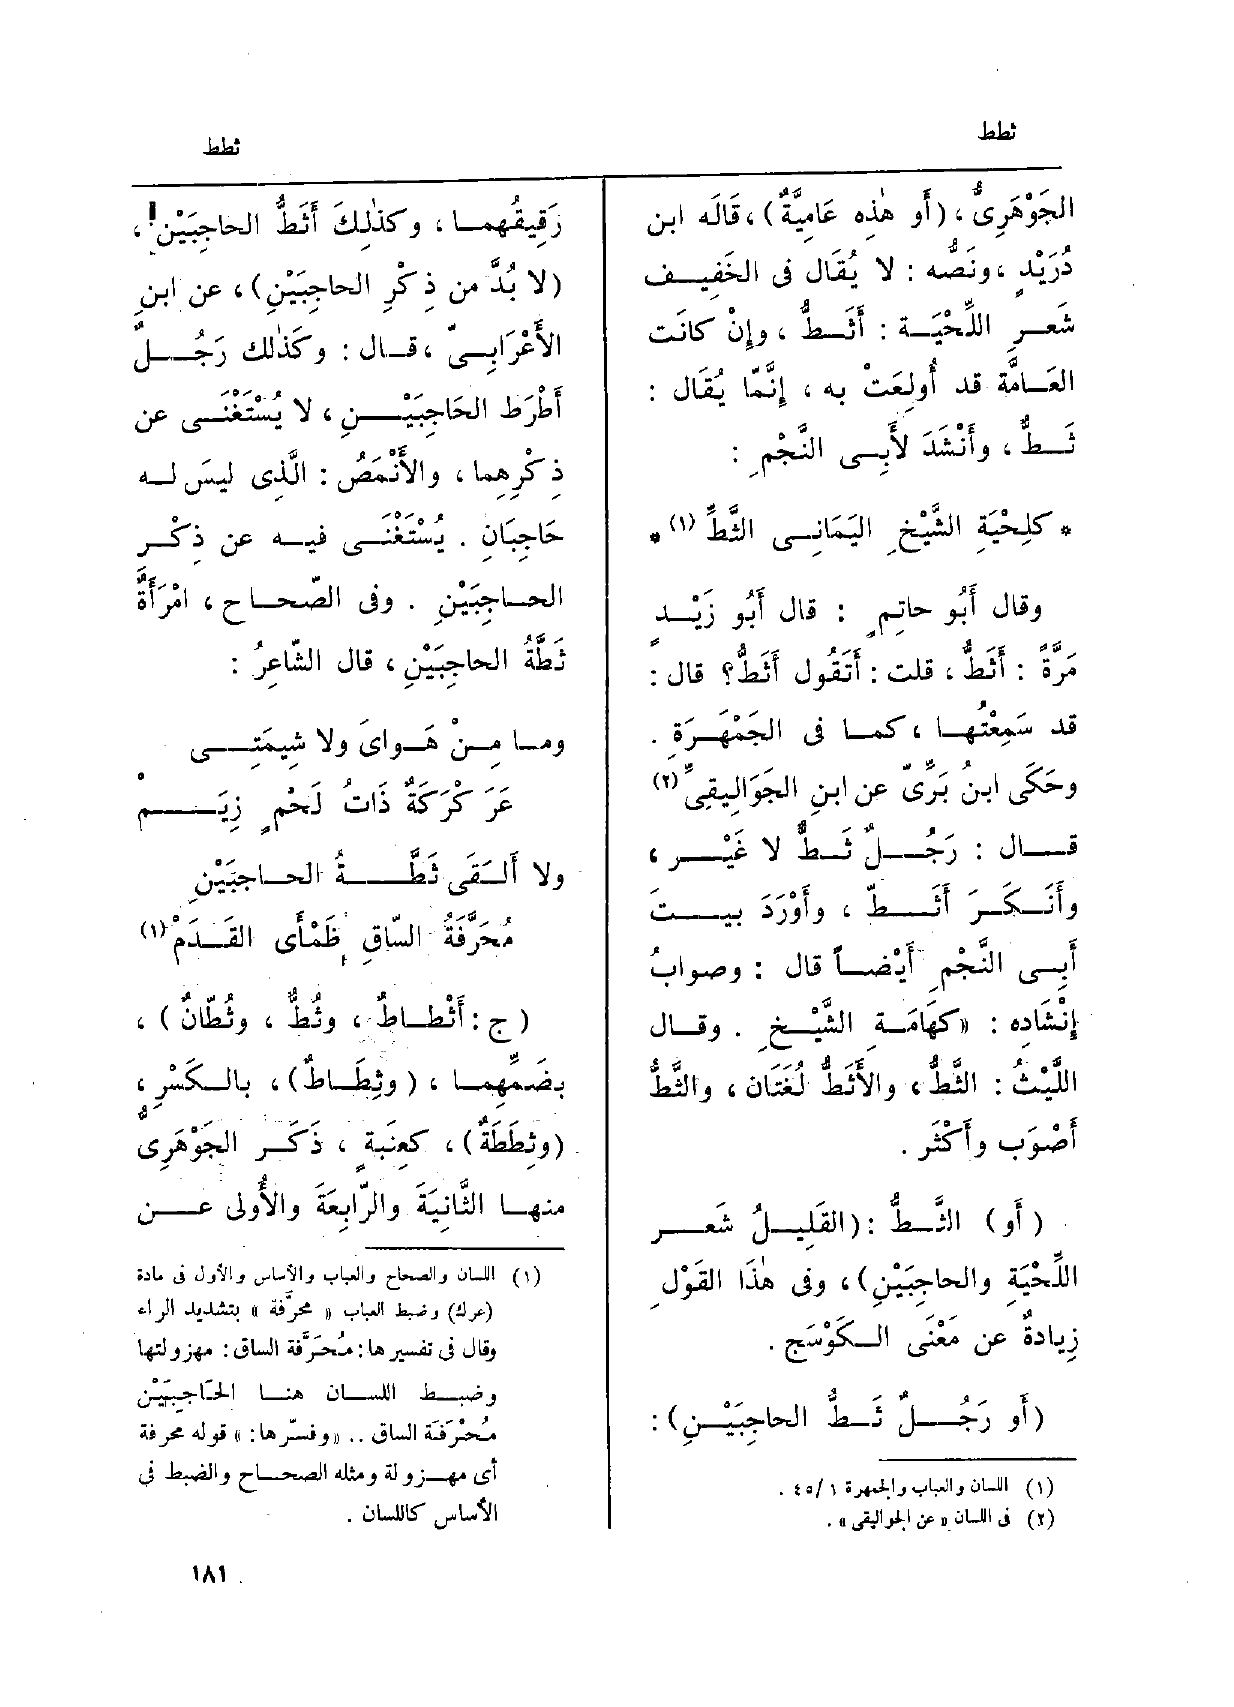 ثطط
ثطط
الجَوْهَرِىُّ، (أَو هٰذِه عَامِيَّةٌ)، قَالَه ابن
دُرَيْدٍ، ونَصُّه : لا يُقَال فى الخَفِيـف
شَعـرِ اللِّحْيَـة : أَثَـطُّ ، وإِنْ كانَت
العَـامَّة قد أُولِعَتْ به ، إِنَّمَا يُقَال :
ثَـطٌّ ، وأَنْشَدَ لأَبِـى النَّجْمِ :
* كلِحْيَةِ الشَّيْخِ اليَمَانِـى الثَّطِّ (١) *
وقال أَبُو حاتِمٍ : قال أَبُو زَيْـدٍ
مَرَّةً : أَثَطُّ ، قلت : أَتَقُول أَثَطُّ؟ قال :
قد سَمِعْتُهـا ، كمـا فى الجَمْهَـرَةِ .
وحَكَى ابنُ بَرِّىّ عن ابنِ الجَوَالِيقِىِّ (٢)
قــال : رَجُــلٌ ثَـطٌّ لا غَيْــر ،
وأَنْـكَـرَ أَثَـــطّ ، وأَوْرَدَ بيــتَ
أَبِـى النَّجْمِ أَيْضـاً قال : وصوابُ
إِنْشَادِه : «كهَامَـةِ الشَّيْـخِ . وقـال
اللَّيْثُ : الثَّطُّ ، والأَثَطُّ لُغَتَان ، والثَّطُّ
أَصْوَب وأَكْثَر .
(أَو) الثَّـطُّ : (القَلِيـلُ شَعــر
اللِّحْيَةِ والحاجِبَيْنِ)، وفى هٰذَا القَوْلِ
زِيادةٌ عن مَعْنَى الـكَوْسَج .
(أَو رَجُــلٌ ثَـطُّ الحاجِبَيْـنِ) :
(١) اللسان والعباب والجمهرة ١/ ٤٥ .
(٢) فى اللسان «عن الجواليقى» .
رَقِيقُهمـا ، وكذٰلِكَ أَثَطُّ الحاجِبَيْنِ ،
(لا بُدَّ من ذِكْرِ الحاجِبَيْنِ)، عن ابنِ
الأَعْرَابِـىّ ، قـال : وكَذٰلك رَجُــلٌ
أَطْرَط الحَاجِبَيْــنِ ، لا يُسْتَغْنَــى عن
ذِكْرِهِما ، والأَنْمَصُ : الَّذِى ليسَ لـه
حَاجِبَانِ . يُسْتَغْنَــى فيـه عن ذِكْـر
الحـاجِبَيْنِ . وفى الصّحـاح ، امْرَأَةٌ
ثَطَّةُ الحاجِبَيْنِ ، قال الشّاعِرُ :
ومـا مِـنْ هَـواىَ ولا شِيمَتِــى
عَرَكْرَكَةٌ ذَاتُ لَحْمٍ زِيَــــمْ
ولا أَلـقَى ثَطَّـــةُ الحـاجِبَيْنِ
مُحَرَّفَةُ السّاقِ ظَمْأَى القَـدَمْ (١)
(ج : أَثْطـاطٌ ، وثُطٌّ ، وثُطَّانٌ) ،
بضَمِّهِمـا ، (وثِطَـاطٌ)، بالـكَسْرِ ،
(وثِطَطَةٌ)، كعِنَبَةٍ ، ذَكَـر الجَوْهَرِىُّ
منهـا الثَّانِيَةَ والرّابِعَةَ والأُولَى عــن
(١) اللسان والصحاح والعباب والأساس والأول فى مادة
(عرك) وضبط العباب «محرَّفة» بتشديد الراء
وقال فى تفسيرها : مُحَرَّفة الساق : مهزولتها
وضبـط اللســان هنــا الحَاجِبَيْن
مُحْرَفَة الساق .. «وفسّرها : » قوله محرفة
أى مهـزولة ومثله الصحـاح والضبط فى
الأساس كاللسان .
١٨١